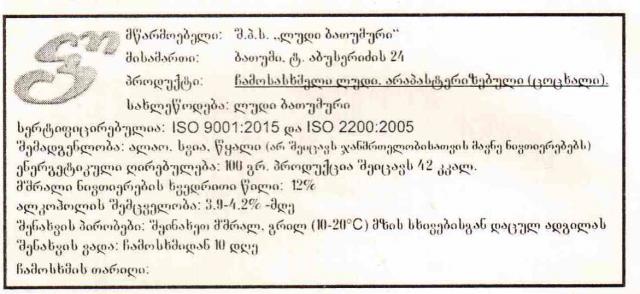 მწარმოებელი: შ.პ.ს. „ლუდი ბათუმური“
მისამართი: ბათუმი, ტ. აბუსერიძის 24
პროდუქტი: ჩამოსასხმელი ლუდი, არაპასტერიზებული (ცოცხალი).
სახლეწოდება: ლუდი ბათუმური
სერტიფიცირებულია: ISO 9001:2015 და ISO 2200:2005
შემადგენლობა: ალაო, სვია, წყალი (არ შეიცავს ჯანმრთელობისათვის მავნე ნივთიერებებს)
ენერგეტიკული ღირებულება: 100 გრ. პროდუქცია შეიცავს 42 კკალ.
მშრალი ნივთიერების ხვედრითი წილი: 12%
ალკოჰოლის შემცველობა: 3.9-4.2% -მდე
შენახვის პირობები: შეინახეთ მშრალ, გრილ (10-20°C) მზის სხივებისგან დაცულ ადგილას
შენახვის ვადა: ჩამოსხმიდან 10 დღე
ჩამოსხმის თარიღი: